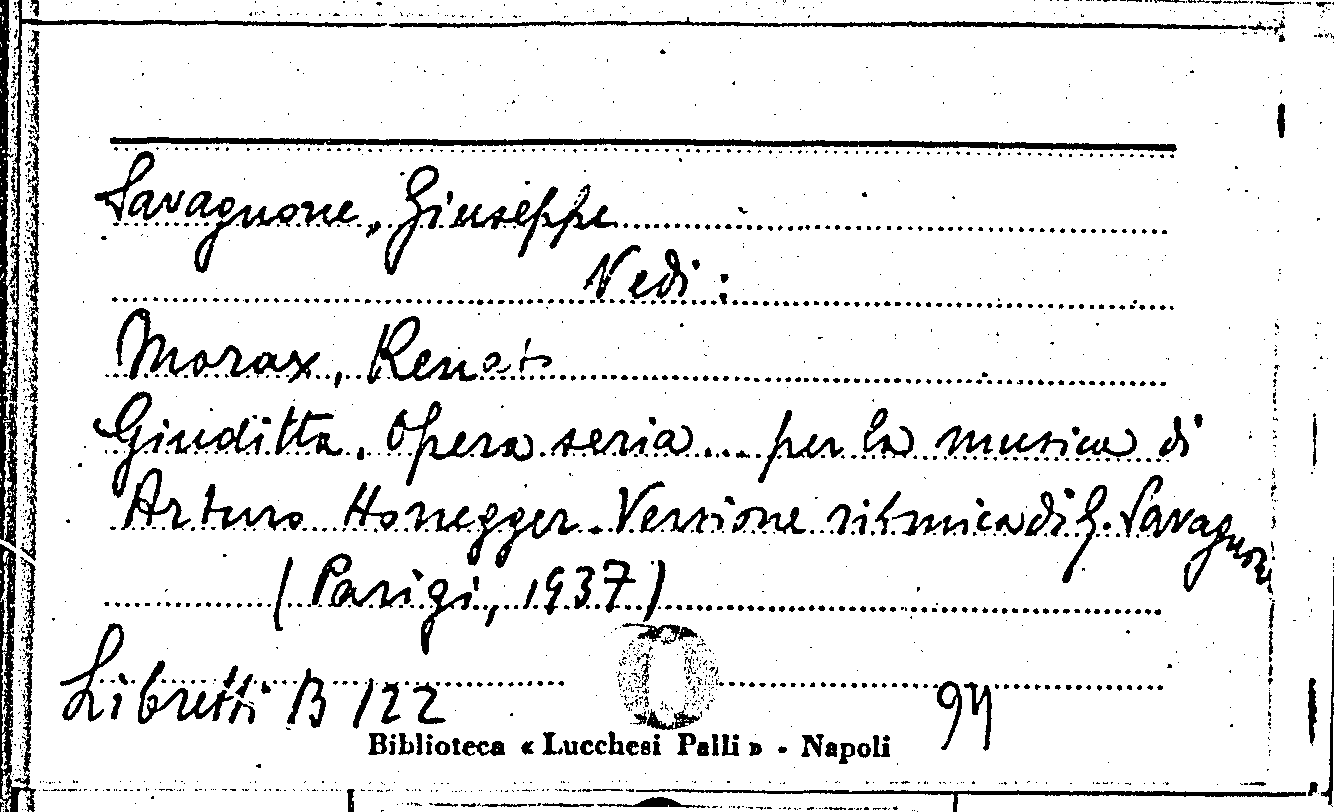 Savagnone, Giuseppe
Vedi:
Morax, Renato
Giuditta. Opera seria... per la musica di
Arturo Honegger. Versione ritmica di G. Savagnone
(Parigi, 1937)
Libretti B 122
94
Biblioteca « Lucchesi Palli » - Napoli